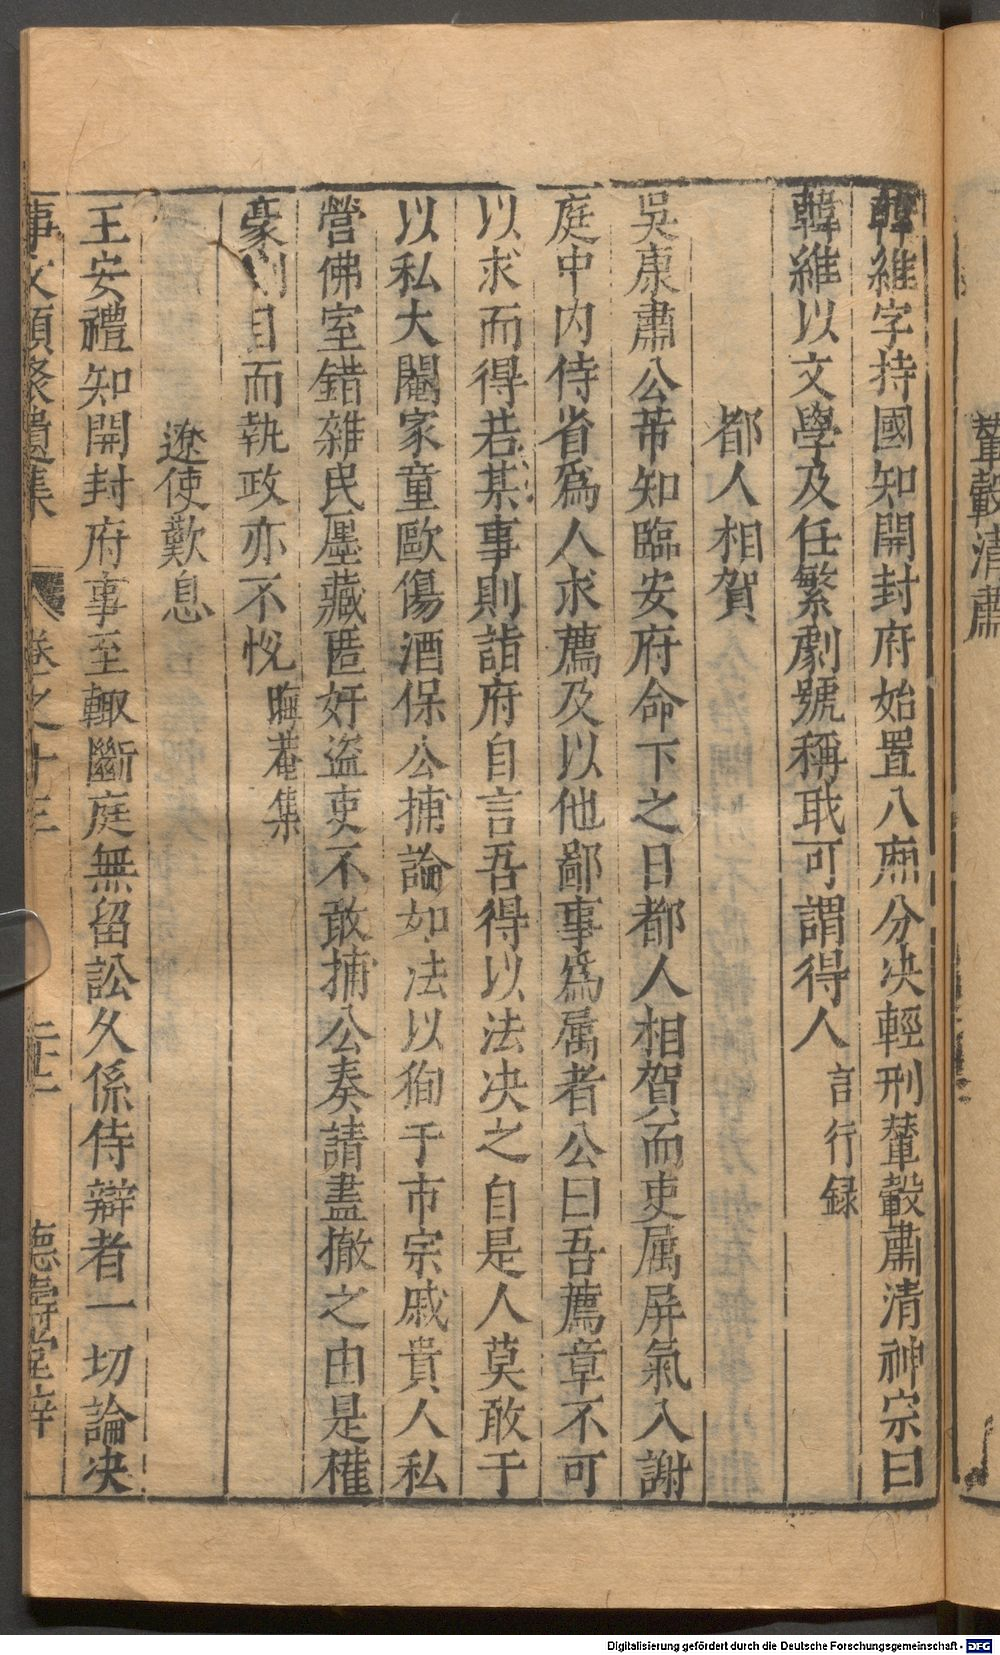 輦轂清肅
韓維字持國知開封府始置八廂分决輕刑輦轂肅清神宗曰
韓維以文學及任繁劇號稱職可謂得人言行録
都人相賀
吳康肅公芾知臨安府命下之日都人相賀而吏属屏氣入謝
庭中内侍省爲人求薦及以他鄙事爲属者公曰吾薦章不可
以求而得若某事則詣府自言吾得以法决之自是人莫敢于
以私大閹家童歐傷酒保公捕論如法以狥于市宗戚貴人私
營佛室錯雜民廛藏匿奸盗吏不敢捕公奏請盡撤之由是權
豪側目而執政亦不悅晦菴集
遼使歎息
王安禮知開封府事至輙斷庭無留訟久係侍辯者一切論决
事文類聚遺集 卷之十三 二十二 德壽堂梓
Digitalisierung gefördert durch die Deutsche Forschungsgemeinschaft - DFG